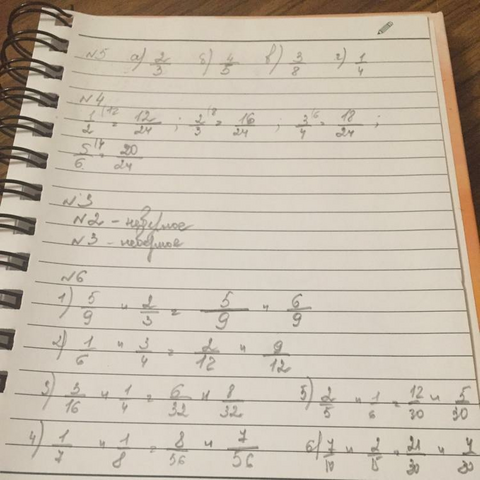 №5 а) 2/3 б) 4/5 в) 3/8 г) 1/4
№4
1/2 |12 = 12/24 ; 2/3 |8 = 16/24 ; 3/4 |6 = 18/24 ;
5/6 |4 = 20/24
№3
№2 - неверное
№3 - неверное
№6
1) 5/9 и 2/3 = 5/9 и 6/9
2) 1/6 и 3/4 = 2/12 и 9/12
3) 3/16 и 1/4 = 6/32 и 8/32 5) 2/5 и 1/6 = 12/30 и 5/30
4) 1/7 и 1/8 = 8/56 и 7/56 6) 7/10 и 2/15 = 21/30 и